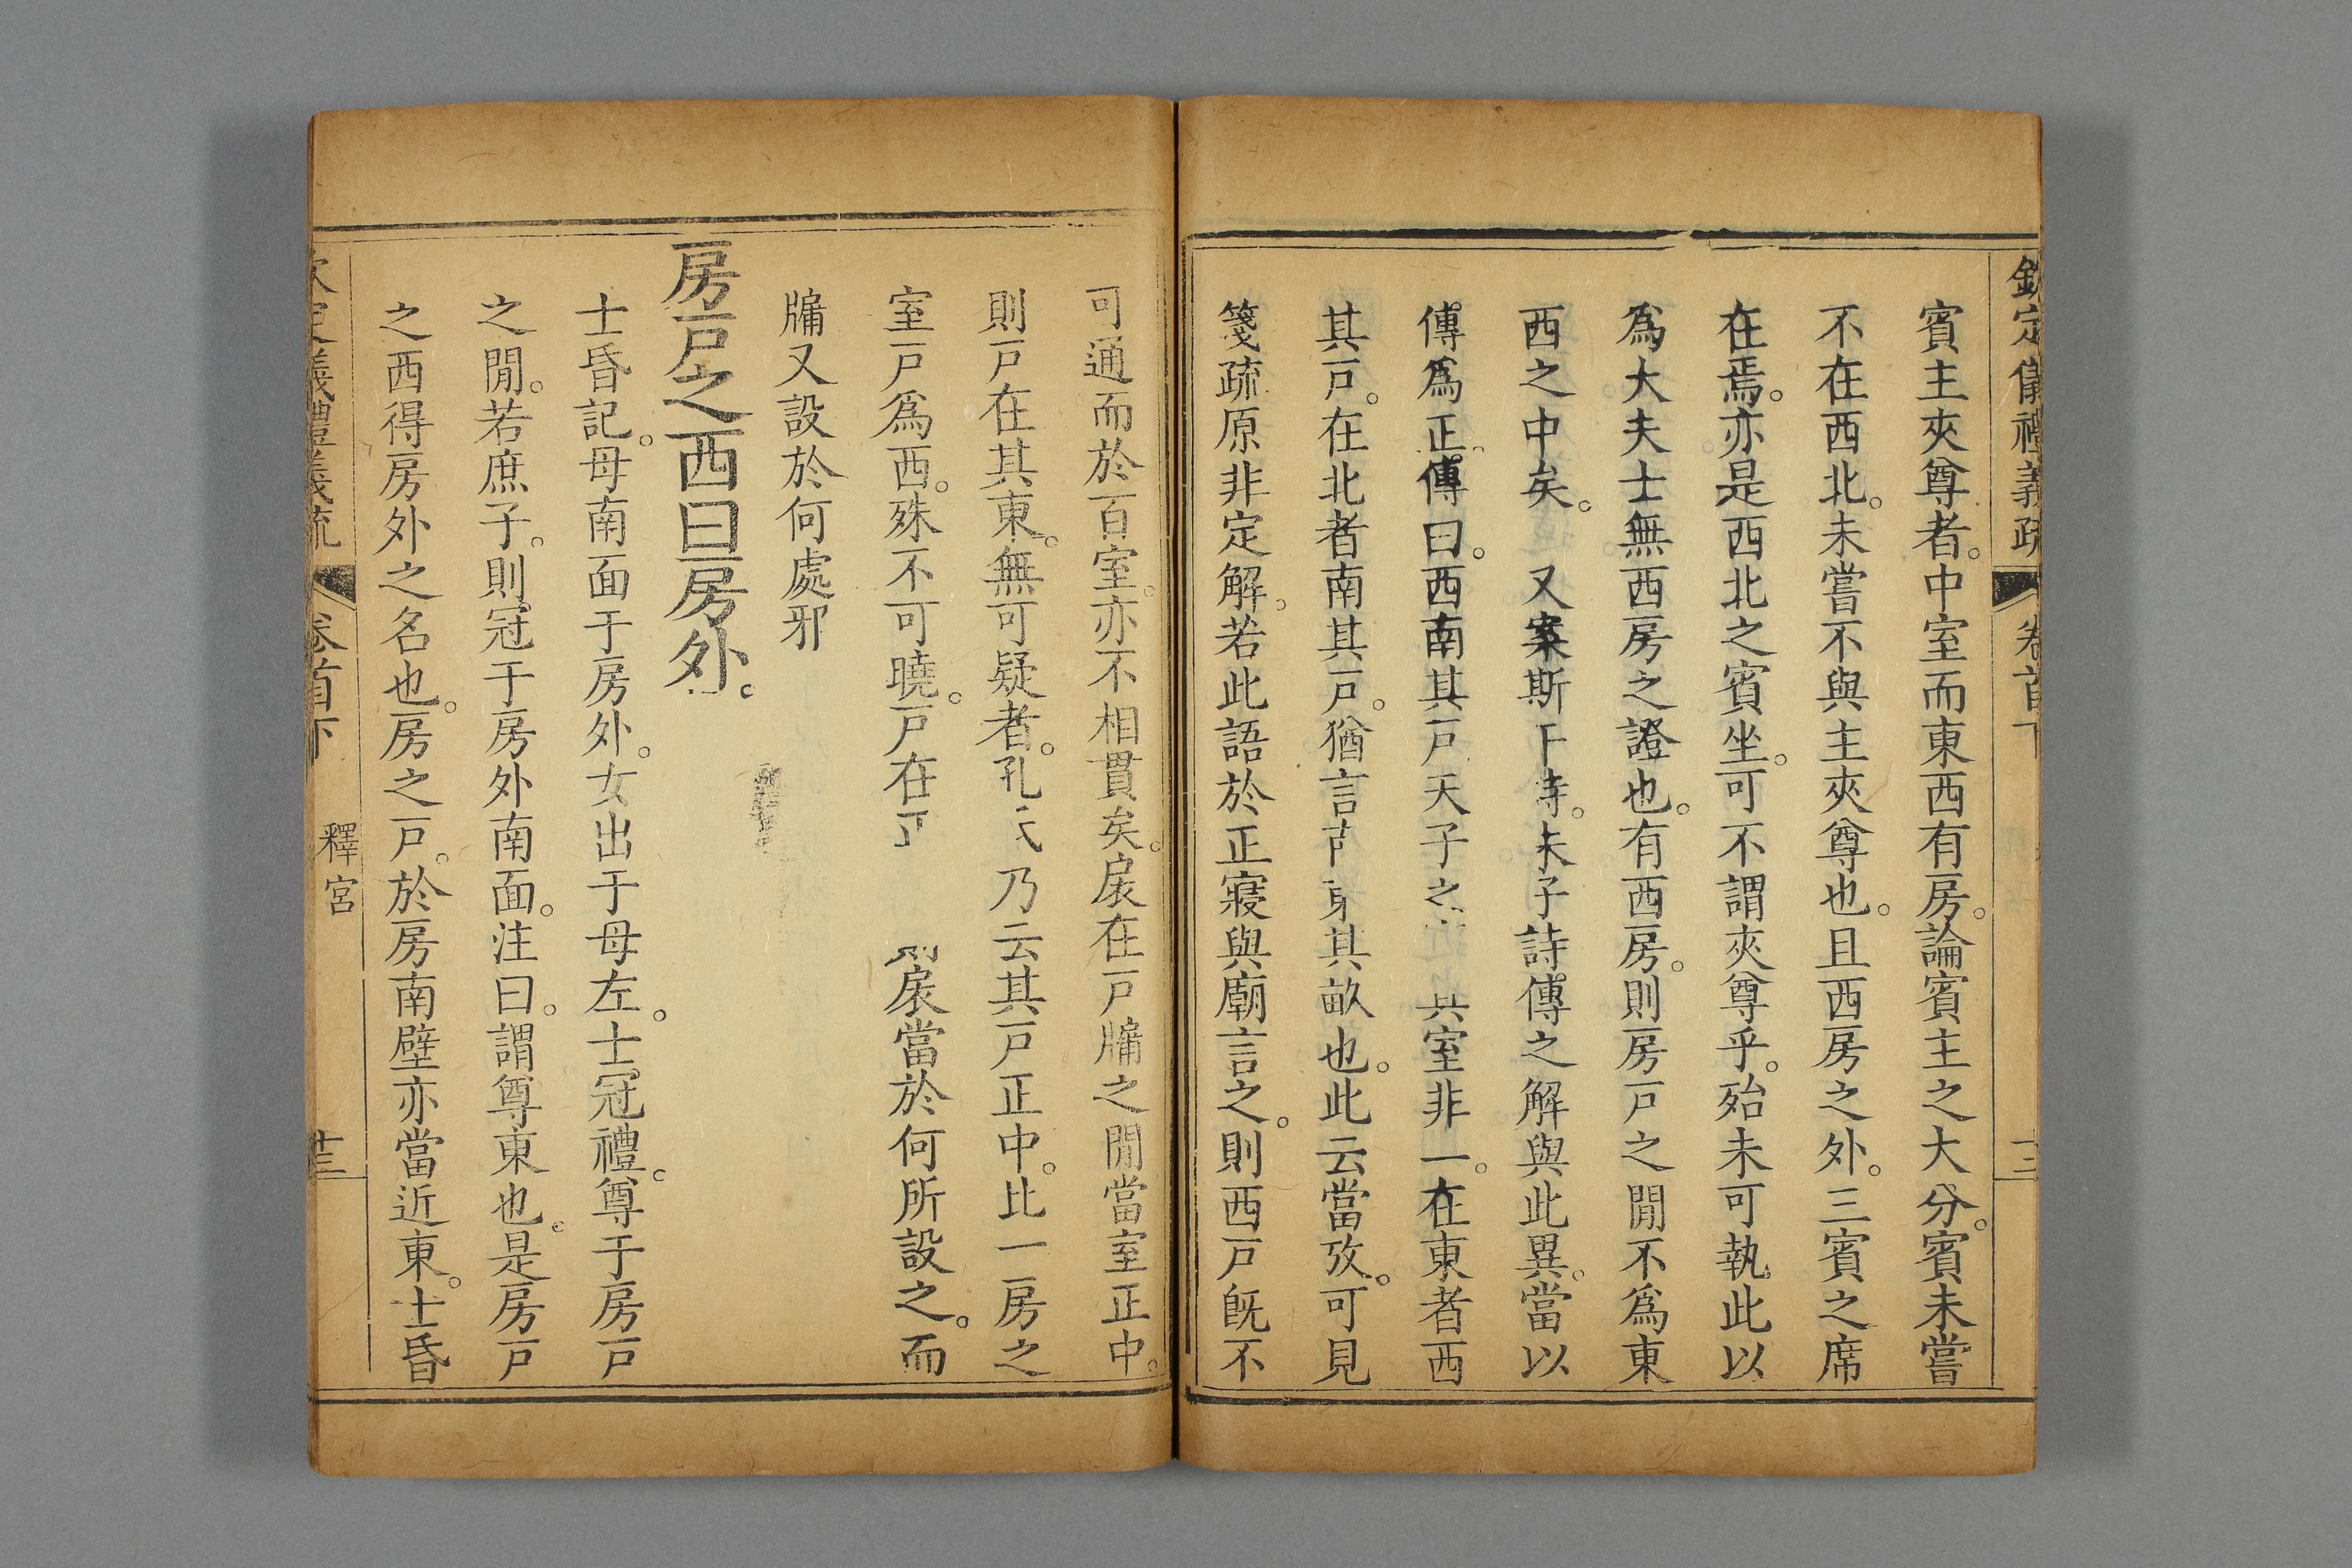 欽定儀禮義疏 卷首下
賓主夾尊者。中室而東西有房。論賓主之大分。賓未嘗
不在西北。未嘗不與主夾尊也。且西房之外。三賓之席
在焉。亦是西北之賓坐。可不謂夾尊乎。殆未可執此以
爲大夫士無西房之證也。有西房。則房戶之閒不爲東
西之中矣。 又案斯干詩。朱子詩傳之解與此異。當以
傳爲正。傳曰。西南其戶天子之 其室非一。在東者西
其戶。在北者南其戶。猶言 其畝也。此云當攷。可見
箋疏原非定解。若此語於正寢與廟言之。則西戶旣不
可通而於百室。亦不相貫矣。扆在戶牖之閒當室正中。
則戶在其東。無可疑者。孔氏乃云其戶正中。比一房之
室戶爲西。殊不可曉。戶在正 則扆當於何所設之。而
牖又設於何處邪
房戶之西曰房外。
士昏記。母南面于房外。女出于母左。士冠禮。尊于房戶
之閒。若庶子。則冠于房外南面。注曰。謂尊東也。是房戶
之西得房外之名也。房之戶。於房南壁亦當近東。士昏
欽定儀禮義疏 卷首下 釋宮 十三